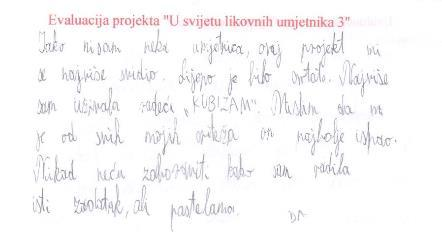 Evaluacija projekta "U svijetu likovnih umjetnika 3"
Iako nisam neka umjetnica, ovaj projekt mi
se najviše svidio. Lijepo je bilo crtati. Najviše
sam uživala radeći „KUBIZAM". Mislim da mi
je od svih mojih crteža on najbolje ispao.
Nikad neću zaboraviti kako sam radila
isti zadatak, ali pastelama.